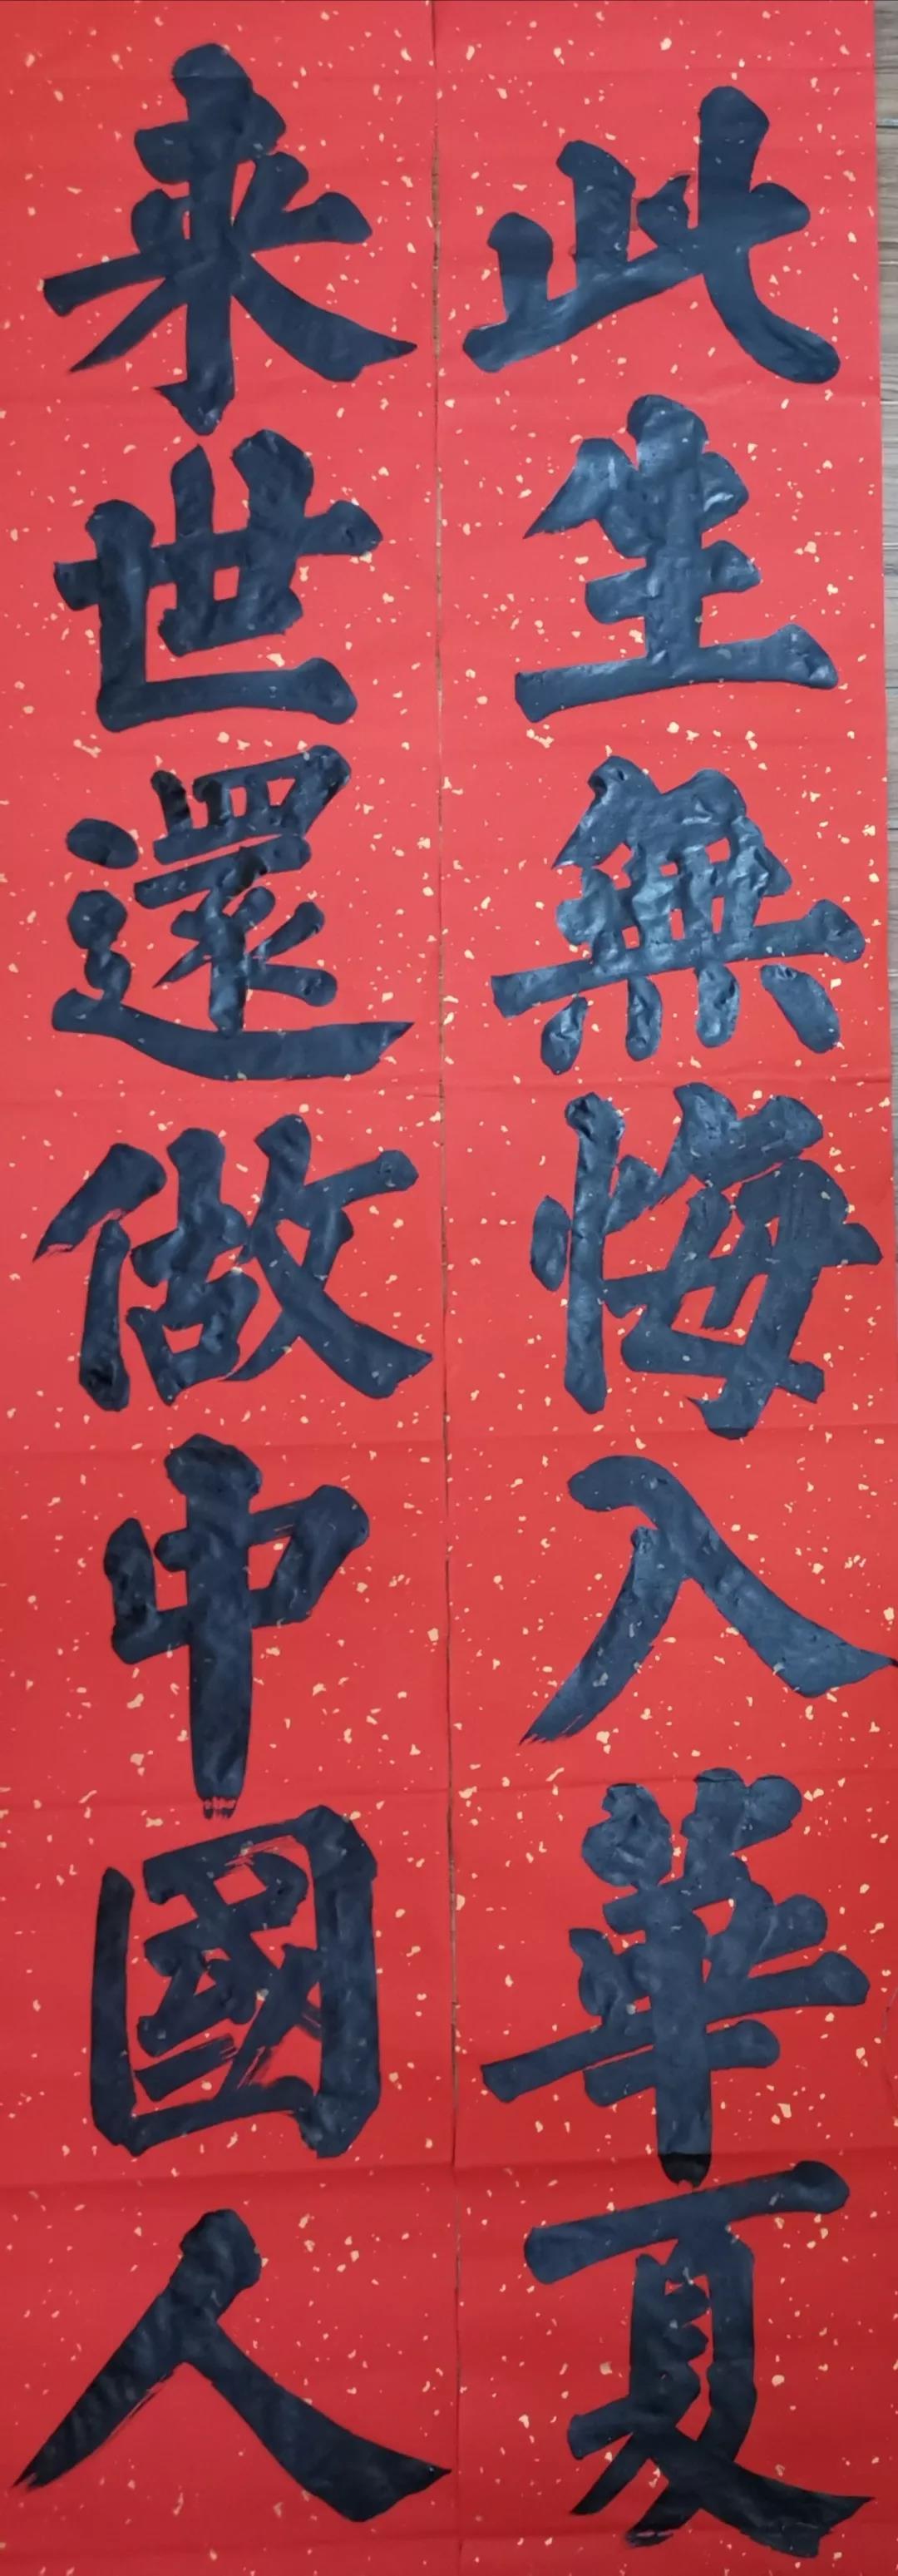 此生無悔入華夏
来世還做中國人